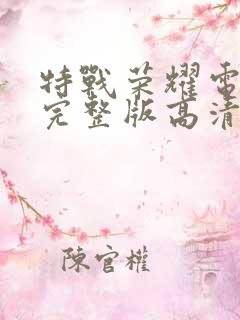 特戰荣耀電
完整版高清
陳官權